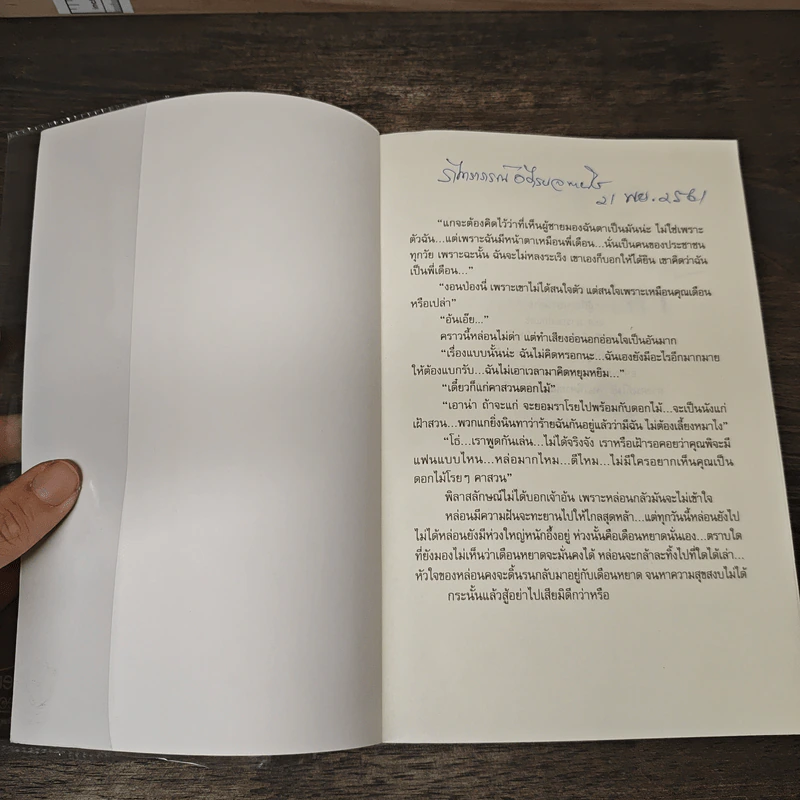 21 พย. 2561
“แกจะต้องคิดไว้ว่าที่เห็นผู้ชายมองฉันตาเป็นมันน่ะ ไม่ใช่เพราะ
ตัวฉัน...แต่เพราะฉันมีหน้าตาเหมือนพี่เดือน...นั่นเป็นคนของประชาชน
ทุกวัย เพราะฉะนั้น ฉันจะไม่หลงระเริง เขาเองก็บอกให้ได้ยิน เขาคิดว่าฉัน
เป็นพี่เดือน...”
“งอนป่องนี่ เพราะเขาไม่ได้สนใจตัว แต่สนใจเพราะเหมือนคุณเดือน
หรือเปล่า”
“อ้นเอ๊ย...”
คราวนี้หล่อนไม่ด่า แต่ทำเสียงอ่อนอกอ่อนใจเป็นอันมาก
“เรื่องแบบนั้นน่ะ ฉันไม่คิดหรอกนะ...ฉันเองยังมีอะไรอีกมากมาย
ให้ต้องแบกรับ...ฉันไม่เอาเวลามาคิดหยุมหยิม...”
“เดี๋ยวก็แก่คาสวนดอกไม้”
“เอาน่า ถ้าจะแก่ จะยอมราโรยไปพร้อมกับดอกไม้...จะเป็นนังแก่
เฝ้าสวน...พวกแกยิ่งนินทาว่าร้ายฉันกันอยู่แล้วว่ามีฉัน ไม่ต้องเลี้ยงหมาไง”
“โธ่...เราพูดกันเล่น...ไม่ได้จริงจัง เราหรือเฝ้ารอคอยว่าคุณพิจะมี
แฟนแบบไหน...หล่อมากไหม...ดีไหม...ไม่มีใครอยากเห็นคุณเป็น
ดอกไม้โรยๆ คาสวน”
พิลาสลักษณ์ไม่ได้บอกเจ้าอ้น เพราะหล่อนกลัวมันจะไม่เข้าใจ
หล่อนมีความฝันจะทะยานไปให้ไกลสุดหล้า...แต่ทุกวันนี้หล่อนยังไป
ไม่ได้หล่อนยังมีห่วงใหญ่หนักอึ้งอยู่ ห่วงนั้นคือเดือนหยาดนั่นเอง...ตราบใด
ที่ยังมองไม่เห็นว่าเดือนหยาดจะมั่นคงได้ หล่อนจะกล้าละทิ้งไปที่ใดได้เล่า...
หัวใจของหล่อนคงจะดิ้นรนกลับมาอยู่กับเดือนหยาด จนหาความสุขสงบไม่ได้
กระนั้นแล้วสู้อย่าไปเสียมิดีกว่าหรือ